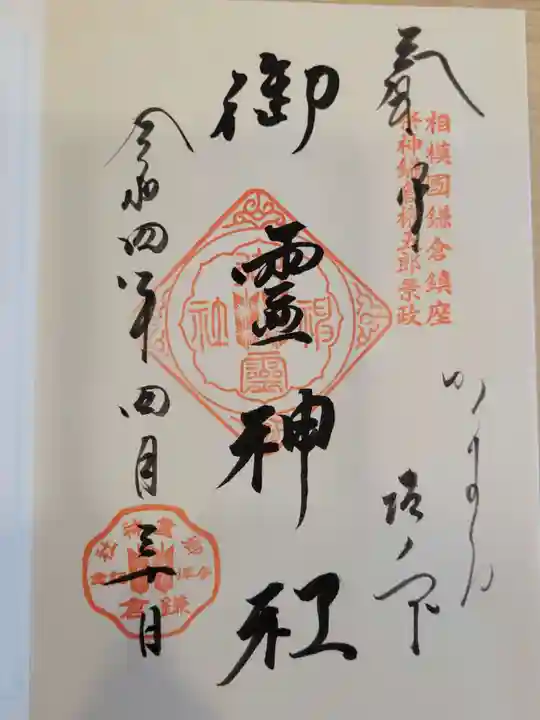 奉拝
相模國鎌倉鎮座
祭神鎌倉権五郎景政
かまくら
坂ノ下
御霊神社
令和四年四月三十日